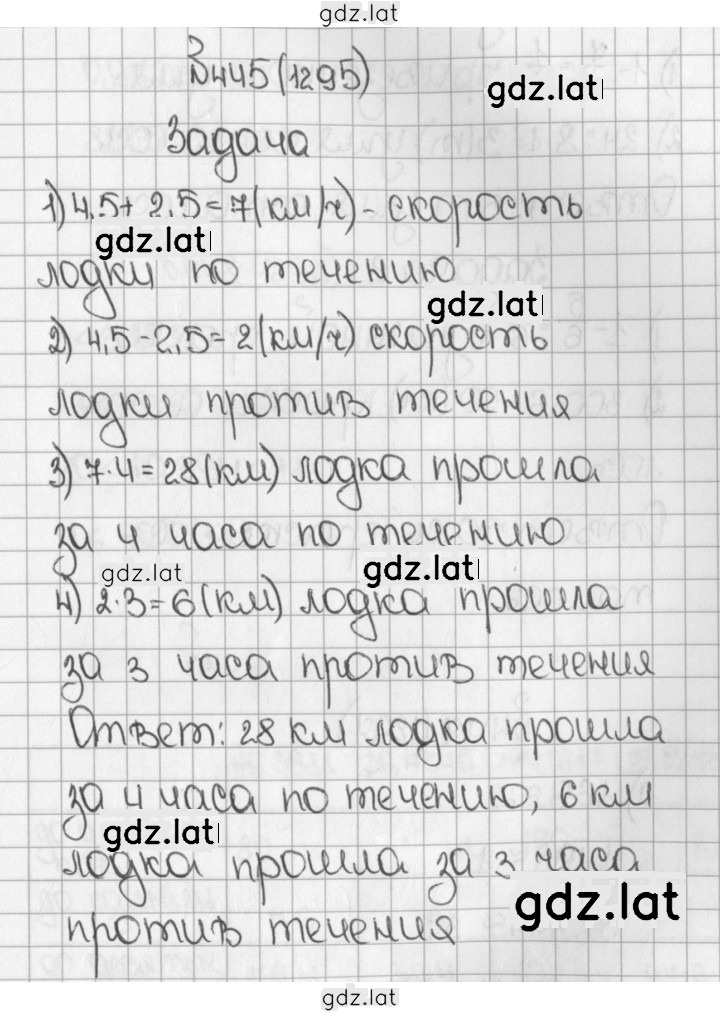 gdz.lat
№445(1295)
gdz.lat
Задача
1) 4,5 + 2,5 = 7(км/ч) - скорость
gdz.lat
лодки по течению
gdz.lat
2) 4,5 - 2,5 = 2(км/ч) скорость
лодки против течения
3) 7·4=28(км) лодка прошла
за 4 часа по течению
gdz.lat gdz.lat
4) 2·3=6(км) лодка прошла
за 3 часа против течения
Ответ: 28 км лодка прошла
за 4 часа по течению, 6 км
gdz.lat
лодка прошла за 3 часа
gdz.lat
против течения
gdz.lat